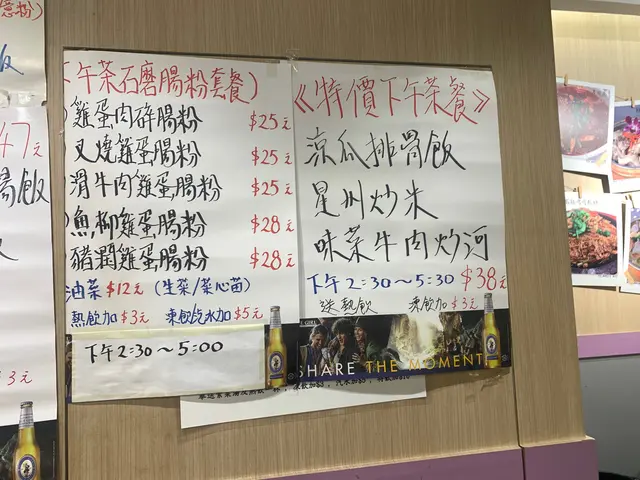 下午茶石磨腸粉套餐)
雞蛋肉碎腸粉 $25元
叉燒雞蛋腸粉 $25元
滑牛肉雞蛋腸粉 $25元
魚柳雞蛋腸粉 $28元
豬潤雞蛋腸粉 $28元
油菜 $12元 (生菜/菜心苗)
熱飲加 $3元 凍飲汽水加 $5元
下午 2:30～5:00
《特價下午茶餐》
涼瓜排骨飯
星州炒米
味菜牛肉炒河
下午 2:30～5:30 $38元
送熱飲 凍飲加 $3元
SHARE THE MOMENT
47元
腸飯
$3元